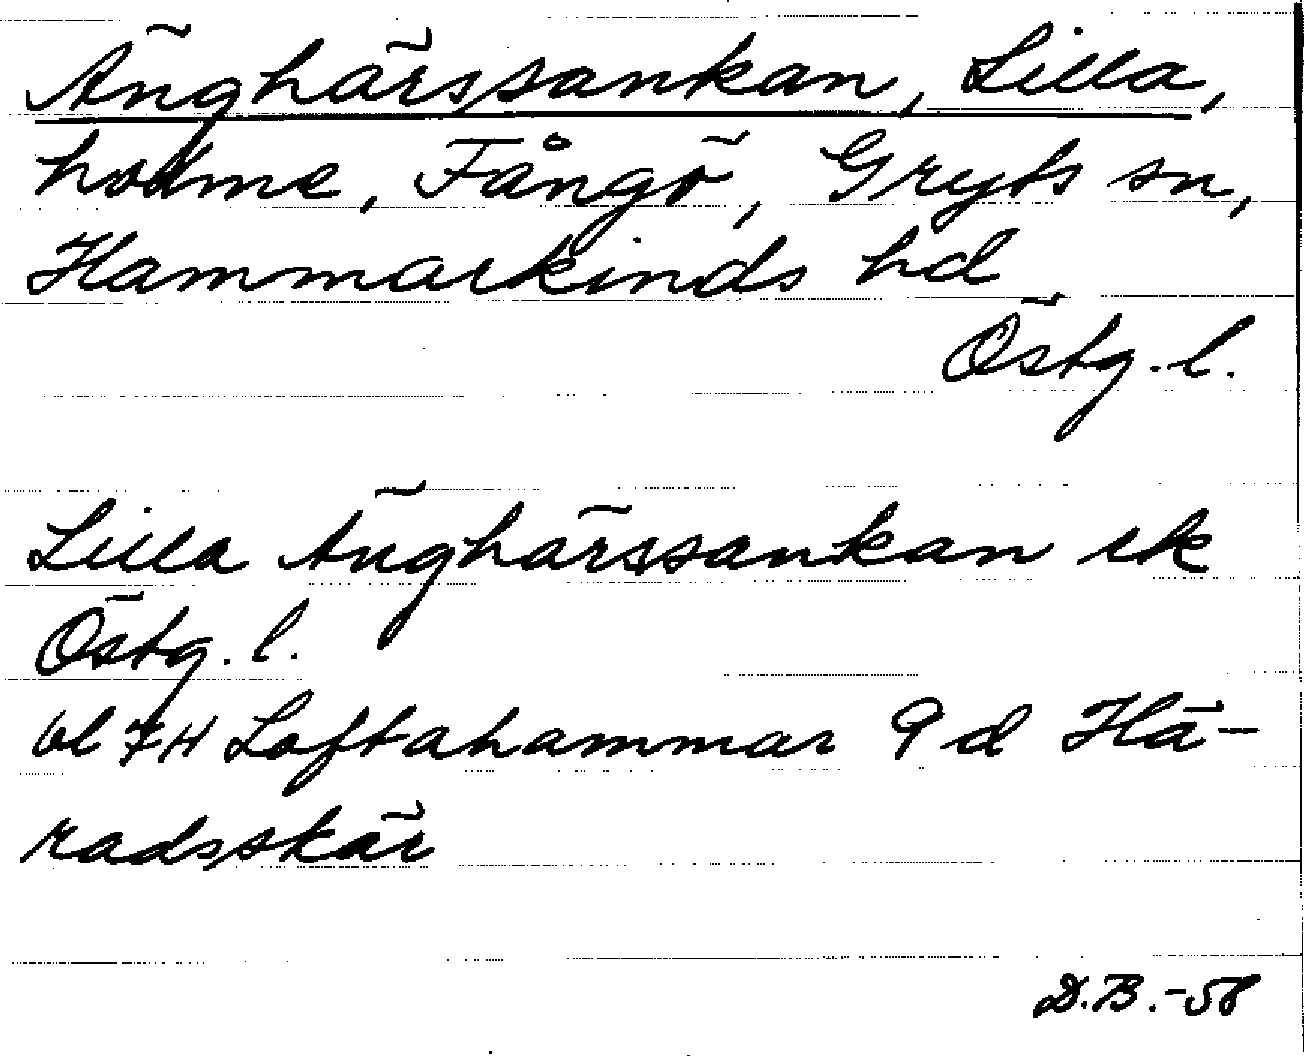 Änghärssankan, Lilla,
holme, Fångö, Gryts sn,
Hammarkinds hd
Östg. l.
Lilla Änghärssankan ek
Östg. l.
bl 7H Loftahammar 9 d Hä-
radsskär
D.B.-58